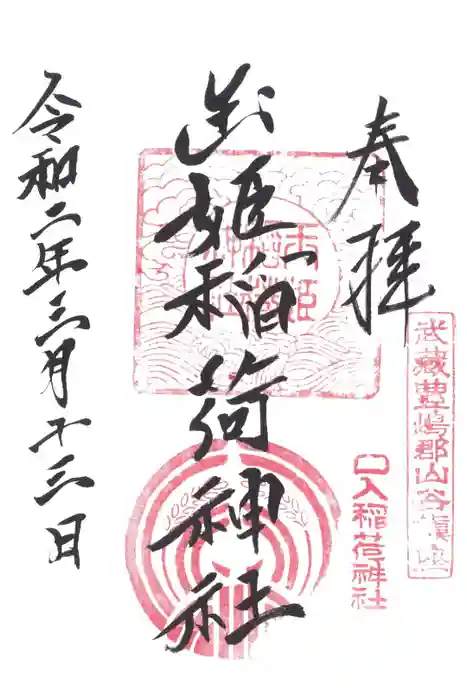 奉拝
武蔵豊嶋郡山谷
口入稲荷神社
玉姫稲荷神社
令和二年三月十三日